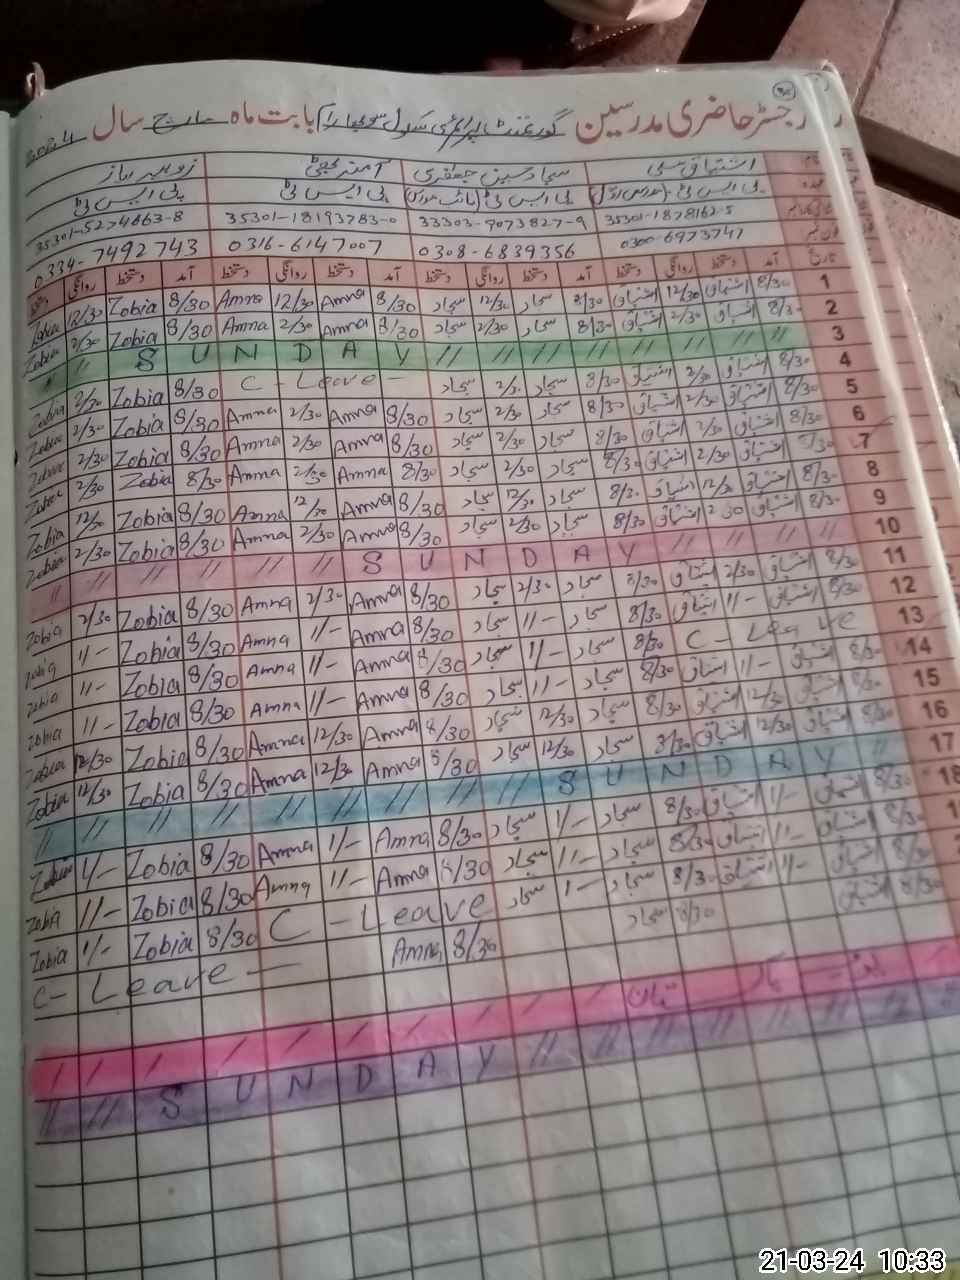 رجسٹر حاضری مدرسین گورنمنٹ پرائمری سکول بابت ماہ مارچ سال 2024
اشتیاق سجاد حسین جعفری آمنہ زوبیہ نیاز
پی ایس ٹی پی ایس ٹی پی ایس ٹی پی ایس ٹی
35301-1878162-5 33303-9073827-9 35301-18193783-0 35301-5274663-8
0300-6973747 0308-6839356 0316-6147007 0334-7492743
تاریخ آمد دستخط روانگی دستخط آمد دستخط روانگی دستخط آمد دستخط روانگی دستخط آمد دستخط روانگی دستخط
1 8/30 اشتیاق 12/30 اشتیاق 8/30 سجاد 12/30 سجاد 8/30 Amna 12/30 Amna 8/30 Zobia 12/30 Zobia
2 8/30 اشتیاق 2/30 اشتیاق 8/30 سجاد 2/30 سجاد 8/30 Amna 2/30 Amna 8/30 Zobia 2/30 Zobia
3 SUNDAY
4 8/30 اشتیاق 2/30 اشتیاق 8/30 سجاد 2/30 سجاد C-Leave- 8/30 Zobia 2/30 Zobia
5 8/30 اشتیاق 2/30 اشتیاق 8/30 سجاد 2/30 سجاد 8/30 Amna 2/30 Amna 8/30 Zobia 2/30 Zobia
6 8/30 اشتیاق 2/30 اشتیاق 8/30 سجاد 2/30 سجاد 8/30 Amna 2/30 Amna 8/30 Zobia 2/30 Zobia
7 8/30 اشتیاق 2/30 اشتیاق 8/30 سجاد 2/30 سجاد 8/30 Amna 2/30 Amna 8/30 Zobia 2/30 Zobia
8 8/30 اشتیاق 12/30 اشتیاق 8/30 سجاد 12/30 سجاد 8/30 Amna 12/30 Amna 8/30 Zobia 12/30 Zobia
9 8/30 اشتیاق 2/30 اشتیاق 8/30 سجاد 2/30 سجاد 8/30 Amna 2/30 Amna 8/30 Zobia 2/30 Zobia
10 SUNDAY
11 8/30 اشتیاق 2/30 اشتیاق 8/30 سجاد 2/30 سجاد 8/30 Amna 2/30 Amna 8/30 Zobia 2/30 Zobia
12 8/30 اشتیاق 11- اشتیاق 8/30 سجاد 11- سجاد 8/30 Amna 11- Amna 8/30 Zobia 11- Zobia
13 C-Leave 8/30 سجاد 11- سجاد 8/30 Amna 11- Amna 8/30 Zobia 11- Zobia
14 8/30 اشتیاق 11- اشتیاق 8/30 سجاد 11- سجاد 8/30 Amna 11- Amna 8/30 Zobia 11- Zobia
15 8/30 اشتیاق 12/30 اشتیاق 8/30 سجاد 12/30 سجاد 8/30 Amna 12/30 Amna 8/30 Zobia 12/30 Zobia
16 8/30 اشتیاق 12/30 اشتیاق 8/30 سجاد 12/30 سجاد 8/30 Amna 12/30 Amna 8/30 Zobia 12/30 Zobia
17 SUNDAY
18 8/30 اشتیاق 11- اشتیاق 8/30 سجاد 1/- سجاد 8/30 Amna 1/- Amna 8/30 Zobia 1/- Zobia
8/30 اشتیاق 11- اشتیاق 8/30 سجاد 11- سجاد 8/30 Amna 11- Amna 8/30 Zobia 11- Zobia
8/30 اشتیاق 11- اشتیاق 8/30 سجاد 1- سجاد C-Leave 8/30 Zobia 1/- Zobia
8/30 اشتیاق 8/30 سجاد 8/30 Amna C-Leave-
SUNDAY
21-03-24 10:33